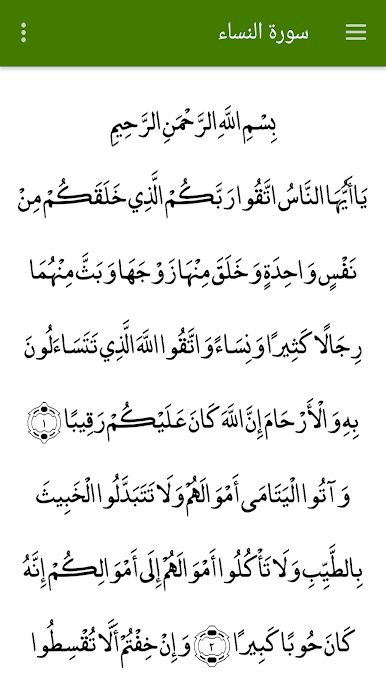 سورة النساء
بِسْمِ اللَّهِ الرَّحْمَنِ الرَّحِيمِ
يَا أَيُّهَا النَّاسُ اتَّقُوا رَبَّكُمُ الَّذِي خَلَقَكُمْ مِنْ
نَفْسٍ وَاحِدَةٍ وَخَلَقَ مِنْهَا زَوْجَهَا وَبَثَّ مِنْهُمَا
رِجَالًا كَثِيرًا وَنِسَاءً وَاتَّقُوا اللَّهَ الَّذِي تَتَسَاءَلُونَ
بِهِ وَالْأَرْحَامَ إِنَّ اللَّهَ كَانَ عَلَيْكُمْ رَقِيبًا ١
وَآتُوا الْيَتَامَى أَمْوَالَهُمْ وَلَا تَتَبَدَّلُوا الْخَبِيثَ
بِالطَّيِّبِ وَلَا تَأْكُلُوا أَمْوَالَهُمْ إِلَى أَمْوَالِكُمْ إِنَّهُ
كَانَ حُوبًا كَبِيرًا ٢ وَإِنْ خِفْتُمْ أَلَّا تُقْسِطُوا